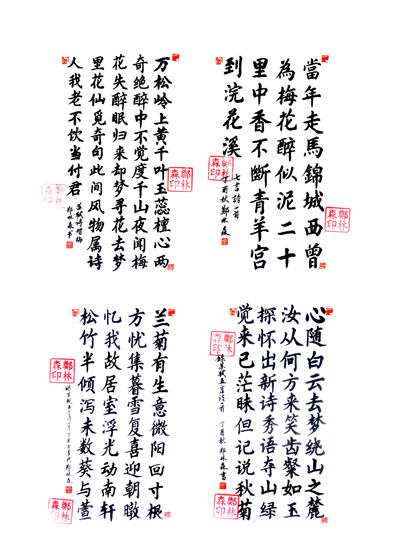 當年走馬錦城西曾
為梅花醉似泥二十
里中香不斷青羊宮
到浣花溪
七言詩一首
丁酉秋鄭林森
鄭林
森印
鄭林
森印
万松岭上黄千叶玉蕊檀心两
奇绝醉中不觉度千山夜闻梅
花失醉眠归来却梦寻花去梦
里花仙觅奇句此间风物属诗
人我老不饮当付君
鄭林
森印
鄭林
森印
心随白云去梦绕山之麓
汝从何方来笑齿粲如玉
探怀出新诗秀语夺山绿
觉来已茫昧但记说秋菊
錄苏轼五言诗一首 丁酉秋 郑林森書
鄭林
森印
鄭林
森印
兰菊有生意微阳回寸根
方忧集暮雪复喜迎朝暾
忆我故居室浮光动南轩
松竹半倾泻未数葵与萱
鄭林
森印
鄭林
森印